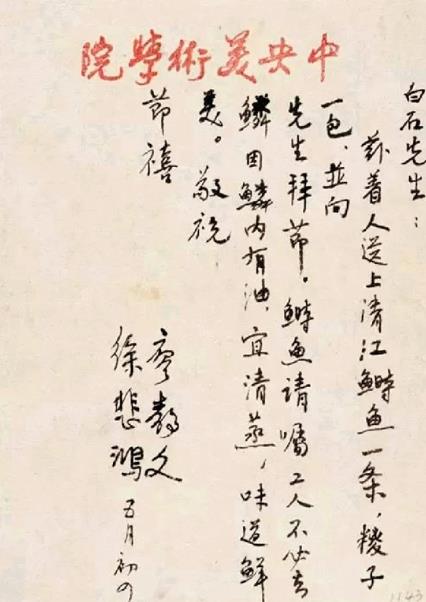 中央美術學院
白石先生：
玆着人送上清江鰣魚一条，糉子
一包、並向
先生拜莭。鰣魚請嘱工人不必去
鱗因鱗内有油，宜清蒸，味道鮮
美。敬祝
莭禧
廖静文
徐悲鴻 五月初四
1143